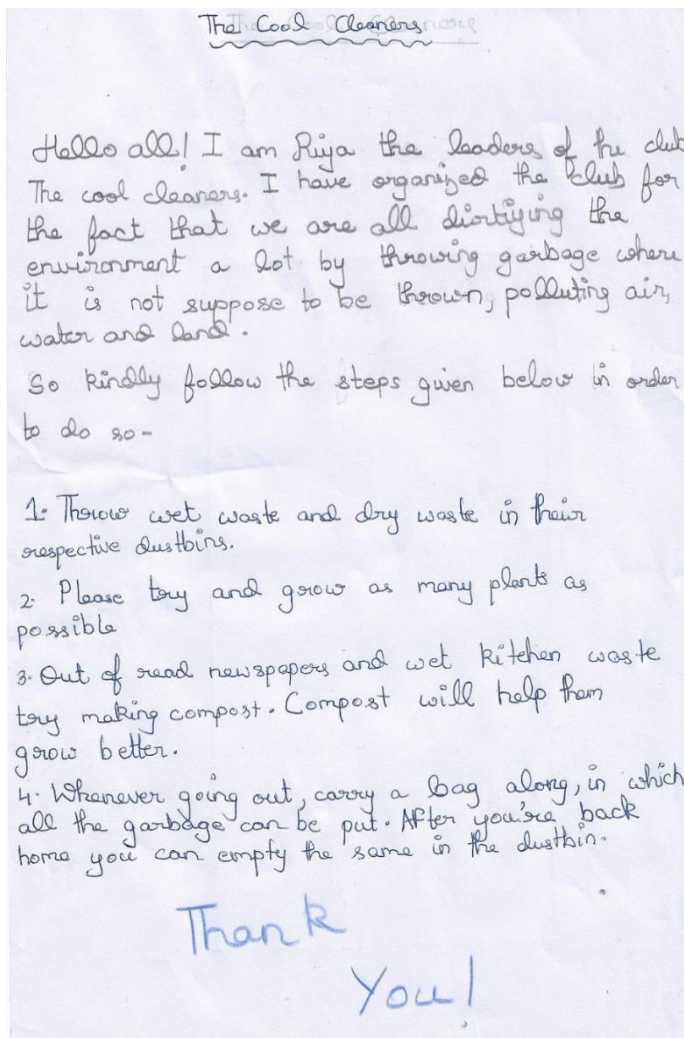 The Cool Cleaners
Hello all! I am Riya the leaders of the club
The cool cleaners. I have organized the club for
the fact that we are all dirtiying the
environment a lot by throwing garbage where
it is not suppose to be thrown, polluting air,
water and land.
So kindly follow the steps given below in order
to do so-
1. Throw wet waste and dry waste in their
respective dustbins.
2. Please try and grow as many plants as
possible
3. Out of read newspapers and wet kitchen waste
try making compost. Compost will help them
grow better.
4. Whenever going out, carry a bag along, in which
all the garbage can be put. After you're back
home you can empty the same in the dustbin.
Thank
You!